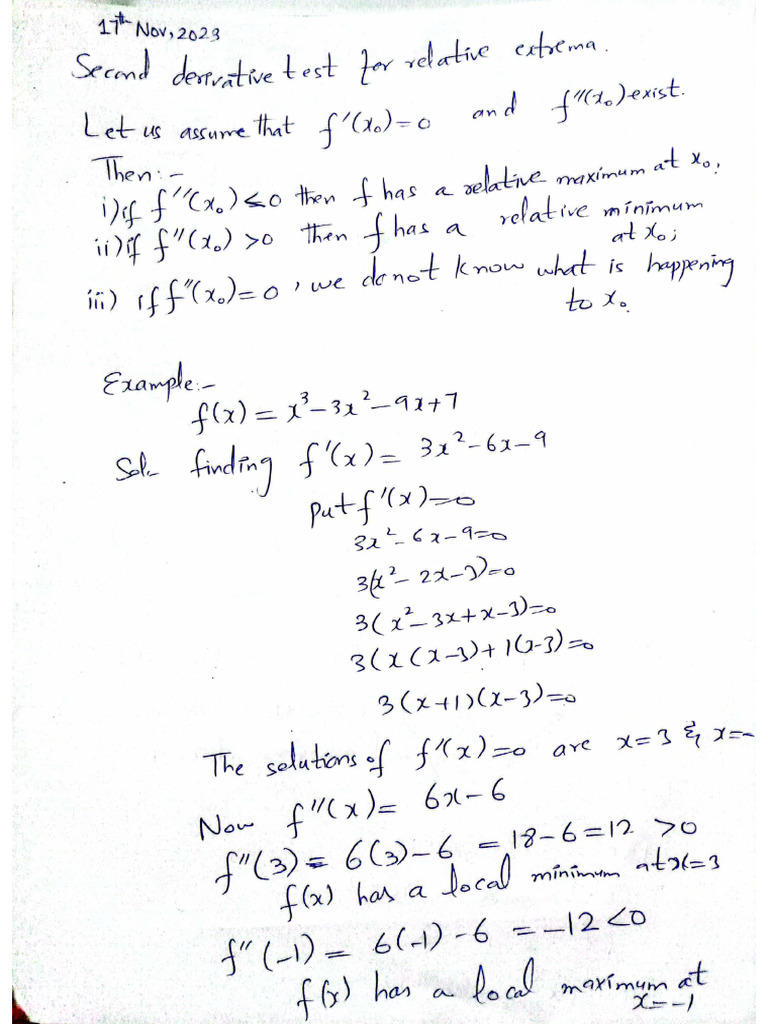 17th Nov, 2023
Second derivative test for relative extrema.
Let us assume that f'(x₀)=0 and f''(x₀) exist.
Then:-
i) if f''(x₀)<0 then f has a relative maximum at x₀,
ii) if f''(x₀) >0 then f has a relative minimum
at x₀;
iii) if f''(x₀)=0, we do not know what is happening
to x₀.
Example:-
f(x) = x³-3x²-9x+7
Sol- finding f'(x) = 3x²-6x-9
Put f'(x)=0
3x²-6x-9=0
3(x²-2x-3)=0
3(x²-3x+x-3)=0
3(x(x-3)+1(x-3)=0
3(x+1)(x-3)=0
The solutions of f'(x)=0 are x=3 & x=-
Now f''(x)= 6x-6
f''(3)= 6(3)-6 =18-6=12 >0
f(x) has a local minimum at x=3
f''(-1) = 6(-1)-6 =-12<0
f(x) has a local maximum at
x=-1